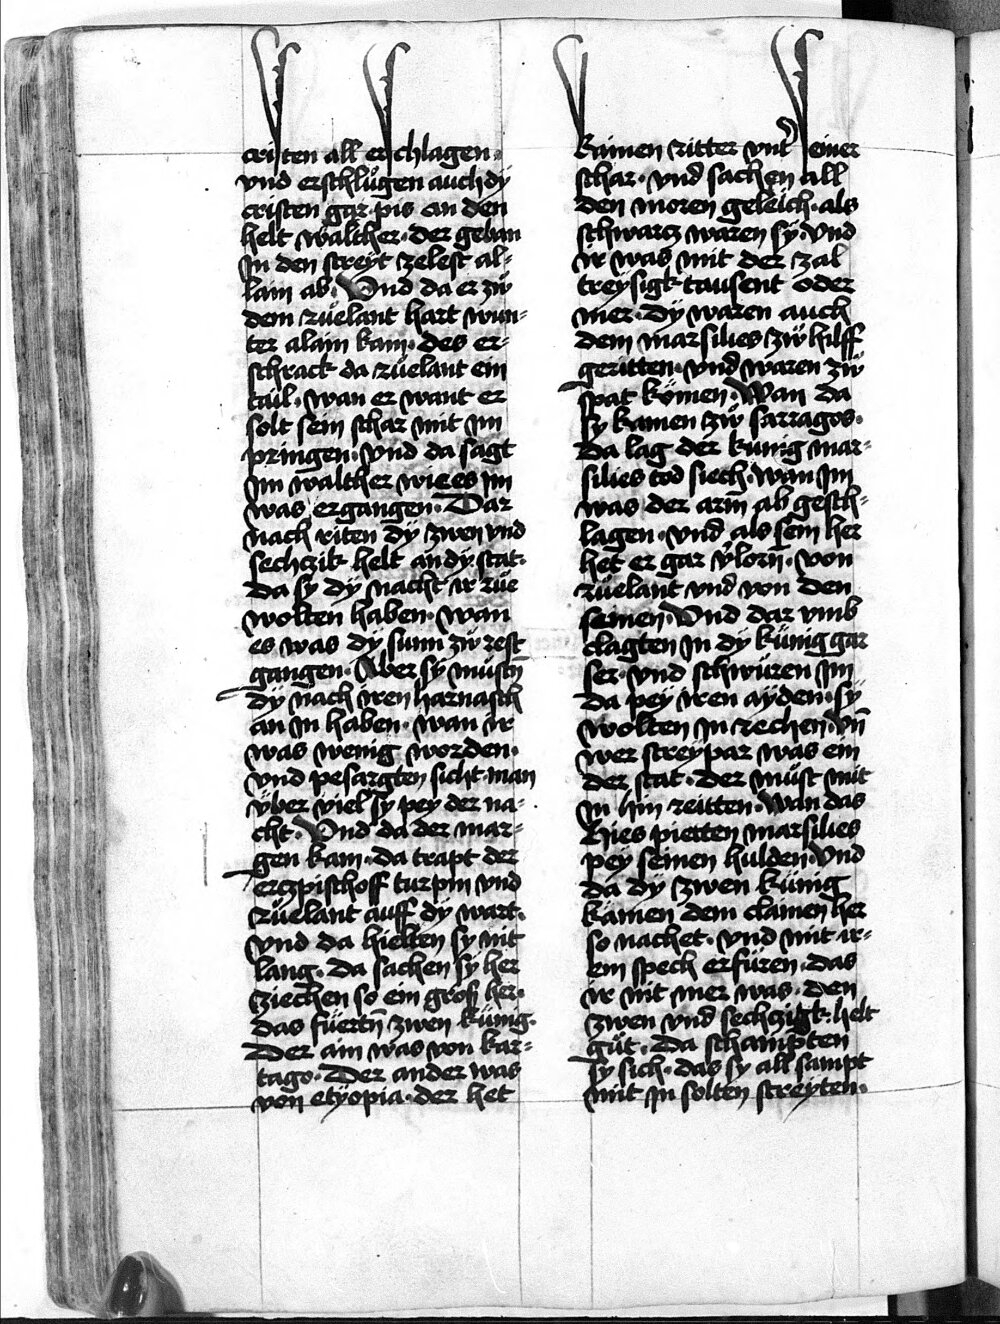 cristen all erschlagen.
vnd erschlůgen auch dy
cristen gar pis an den
helt walther. der geban
In den streyt zelest al-
lain ab. Vnd da er zů
dem růelant hart wun-
ter alain kam. des er-
schrack da růelant ein
tail. wan er want er
solt sein schar mit Im
pringen. vnd da sagt
Im walther wie es Im
was ergangen. Dar
nach riten dy zwen vnd
sechczik helt an dy stat.
da sy dy nacht ir růe
wolten haben. wan
es was dy sunn zů rest
gangen. Aber sy můstn
dy nach iren harnasch
an In haben. wan ir
was wenig worden.
vnd pesargten sicht man
v̈ber viel sy pey der na-
cht. Vnd da der mar-
gen kam. da trapt der
erczpischoff turpin vnd
růelant auff dy wart.
vnd da hielten sy nit
lang. da sachen sy her
ziechen so ein groß her.
das fůertn̄ zwen kůnig.
Der ain was von kar-
tago. Der ander was
von etyopia. der het
kainen ritter vnt̉ einer
schar. vnd sachen all
den moren geleich. als
schwarcz waren sy. vnd
ir was mit der zal
treysigk tausent oder
mer. dy waren auch
dem marsilies zů hilff
geritten. vnd waren zů
spat kömen. Wan da
sy kamen zů sarragos.
da lag der kunig mar-
silies tod siech. wan Im
was der arm̄ ab gesch-
lagen. vnd als sein her
het er gar v̉lorn̄. von
růelant vnd von den
seinen. Vnd dar vmb
clagten In dy kůnig gar
ser. vnd schwůren Im
da pey iren ayden. sy
wolten In rechen. vn̄
wer streypar was ein
der stat. der můst mit
In hin reitten. wan das
hies pietten marsilies
pey seinen hulden. Vnd
da dy zwen kůnig
kamen dem clainen her
so nachet. vnd mit ir-
em spech erfůren. das
ir nit mer was. den
zwen vnd sechczigk helt
gůt. Da schampten
sy sich. das sy all sampt
mit In solten streyten.